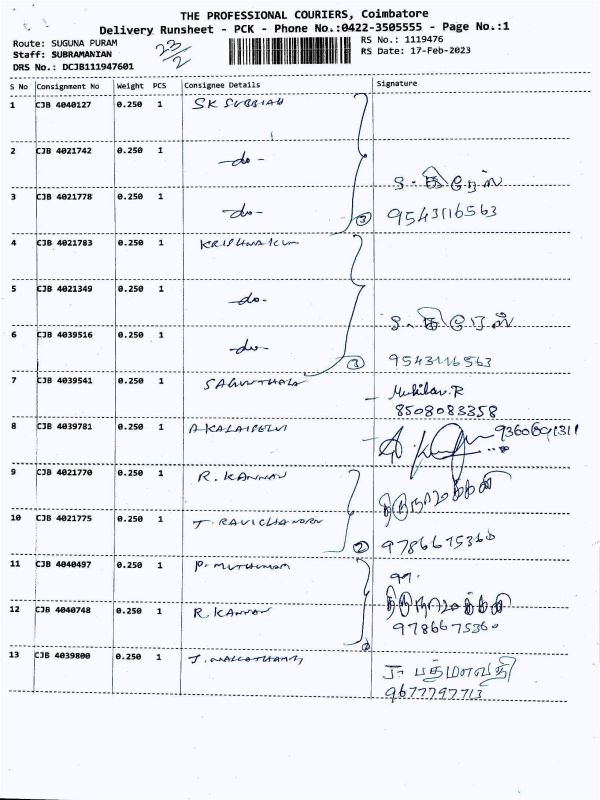 THE PROFESSIONAL COURIERS, Coimbatore
Delivery Runsheet - PCK - Phone No.:0422-3505555 - Page No.:1
Route: SUGUNA PURAM 23/2 RS No.: 1119476
Staff: SUBRAMANIAN RS Date: 17-Feb-2023
DRS No.: DCJB111947601
S No Consignment No Weight PCS Consignee Details Signature
1 CJB 4040127 0.250 1 SK SUBBIAH
2 CJB 4021742 0.250 1 -do-
3 CJB 4021778 0.250 1 -do- 3 9543116563
4 CJB 4021783 0.250 1
5 CJB 4021349 0.250 1 -do-
6 CJB 4039516 0.250 1 -do- 3 9543116563
7 CJB 4039541 0.250 1 Mukilan.R
8508083358
8 CJB 4039781 0.250 1 A KALAISELVI
9 CJB 4021770 0.250 1 R. KANNAN
10 CJB 4021775 0.250 1 T. RAVICHANDRN 2 9786675360
11 CJB 4040497 0.250 1
12 CJB 4040748 0.250 1 R. KANNAN
9786675360
13 CJB 4039800 0.250 1 J. பத்மாவதி
9677797713